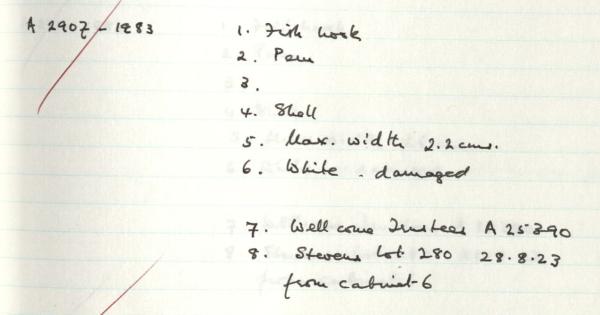 A 2907 - 1983
1. Fish hook
2. Peru
3.
4. Shell
5. Max. width 2.2cms.
6. White. damaged
7. Wellcome Trustees A 25390
8. Stevens Lot 280 28.8.23
from cabinet 6